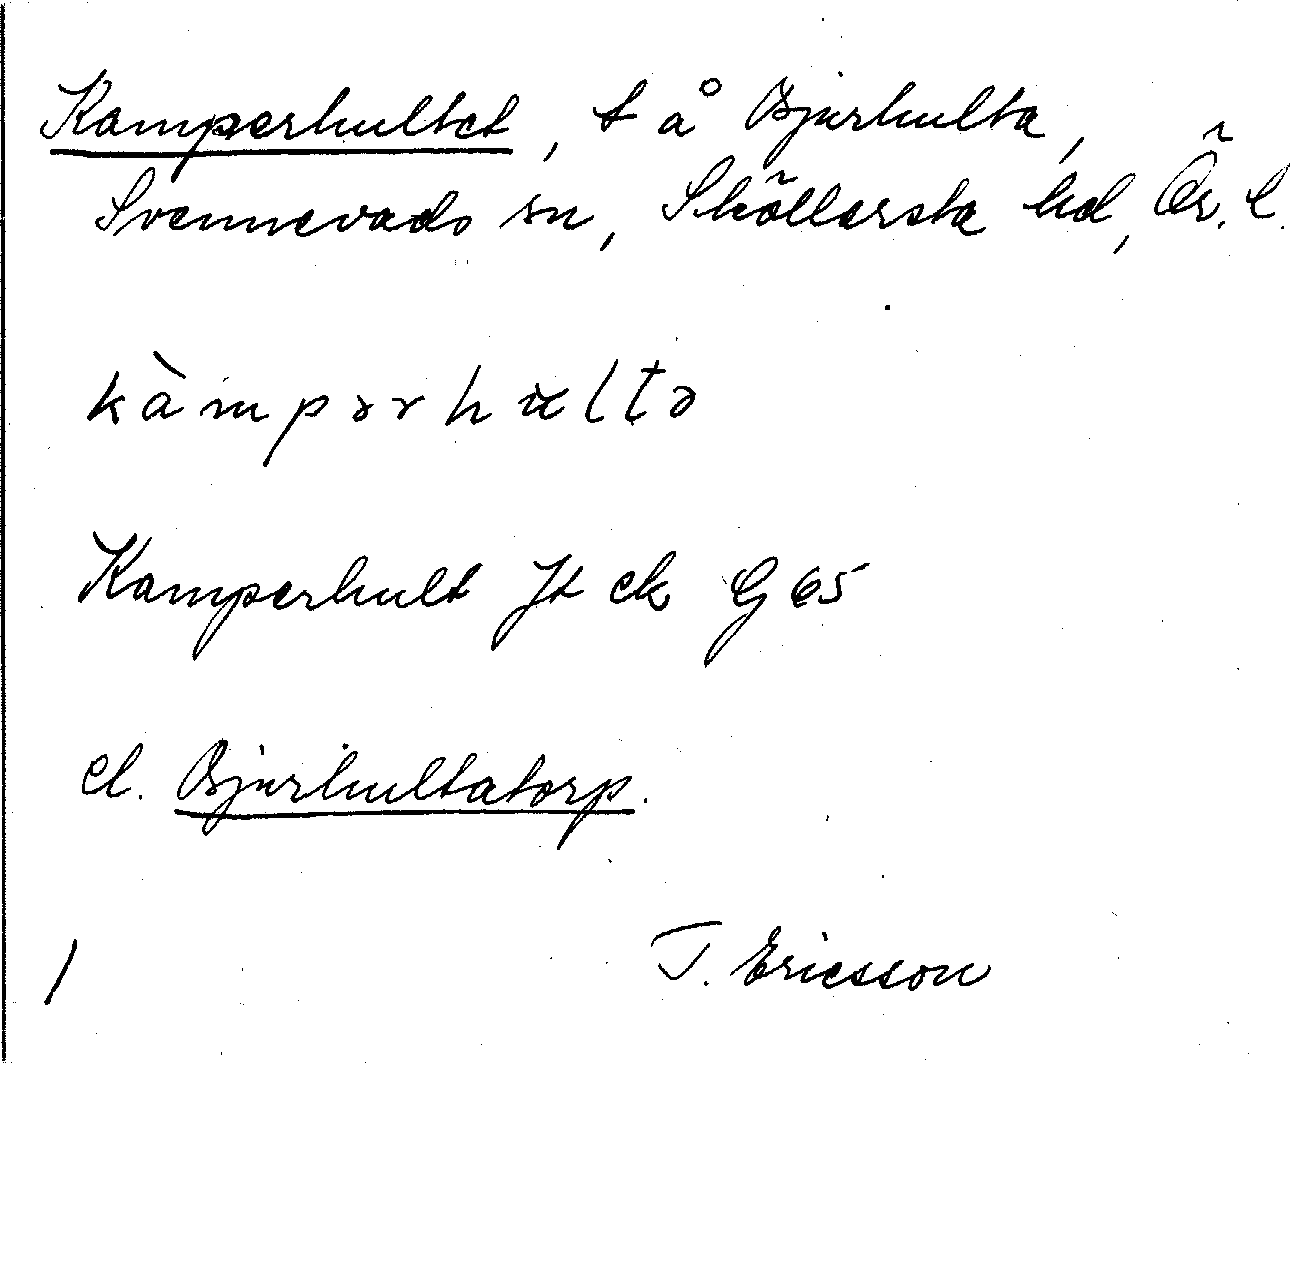 Kamperhultet, t å Bjurhulta,
Svennevads sn, Sköllersta hd, Ör. l.
kàmpərhultə
Kamperhult Jt ek G 65
el. Bjurhultatorp.
/ T. Ericsson